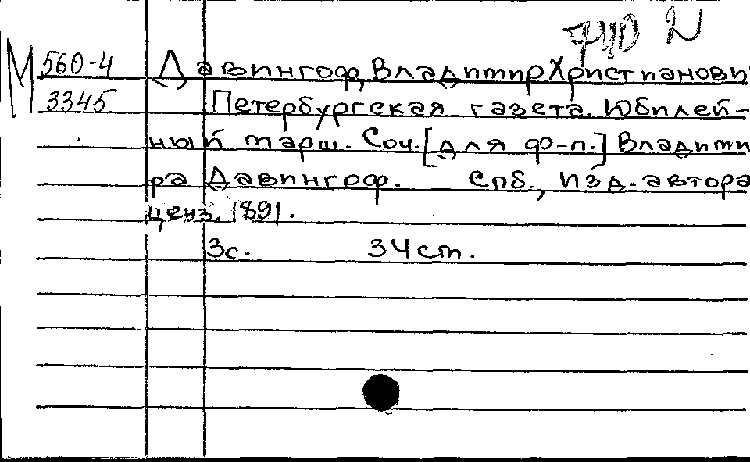 М 560-4 Давингоф, Владимир Христианович
3345 Петербургская газета. Юбилей-
ный марш. Соч. [для ф-п.] Влади­ми
ра Давингоф. Спб., изд. автора
ценз. 1891.
3с. 34см.